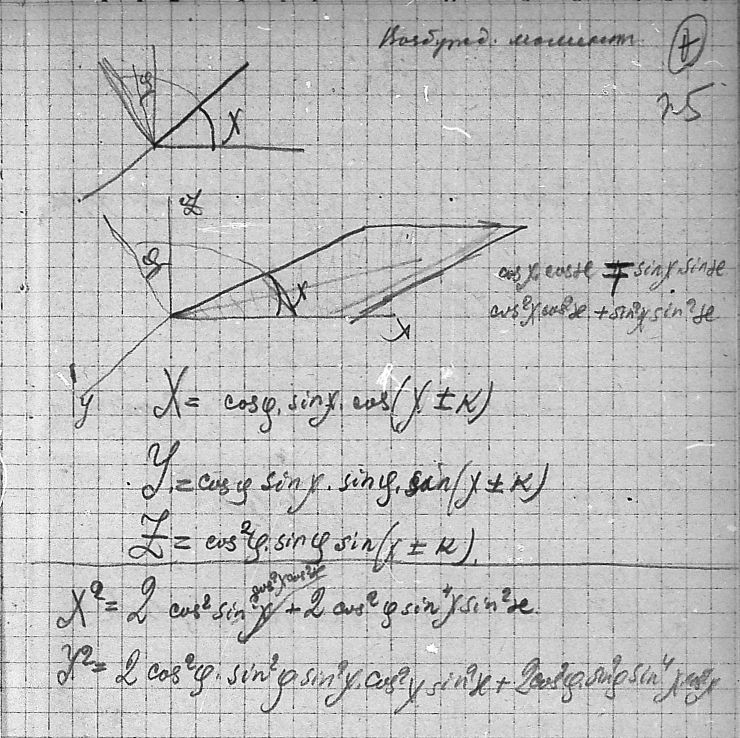 Возбужд. момент +
№5
φ
χ
Z
φ
χ
x
cosχ cosϰ ∓ sinχ sinϰ
cos²χ cos²ϰ + sin²χ sin²ϰ
y
X = cosφ. sinχ. cos(χ ± κ)
Y = cosφ sinχ. sinφ. sin(χ ± κ)
Z = cos²φ. sinφ sin(χ ± κ).
X² = 2 cos² sin²χ cos²χ cos²ϰ + 2 cos²φ sin⁴χ sin²ϰ.
Y² = 2 cos²φ. sin²φ sin²χ. cos²χ sin²ϰ + 2cos²φ sin²φ sin⁴χ cos²ϰ